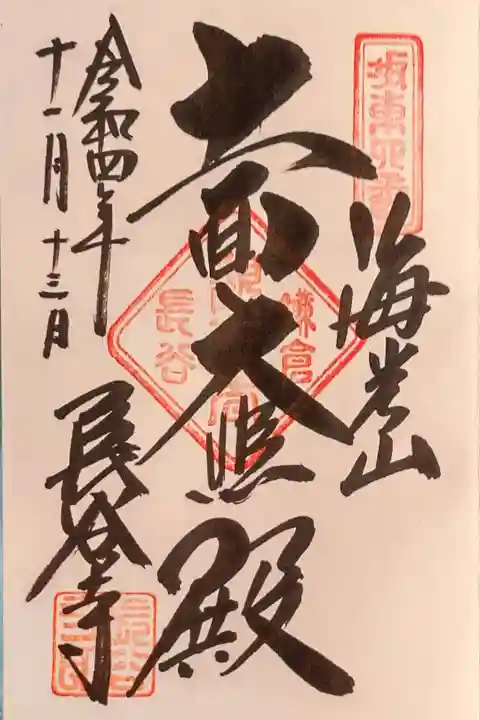 坂東四番
海光山
十一面大悲殿
鎌倉
長谷
令和四年
十一月十三日
長谷寺